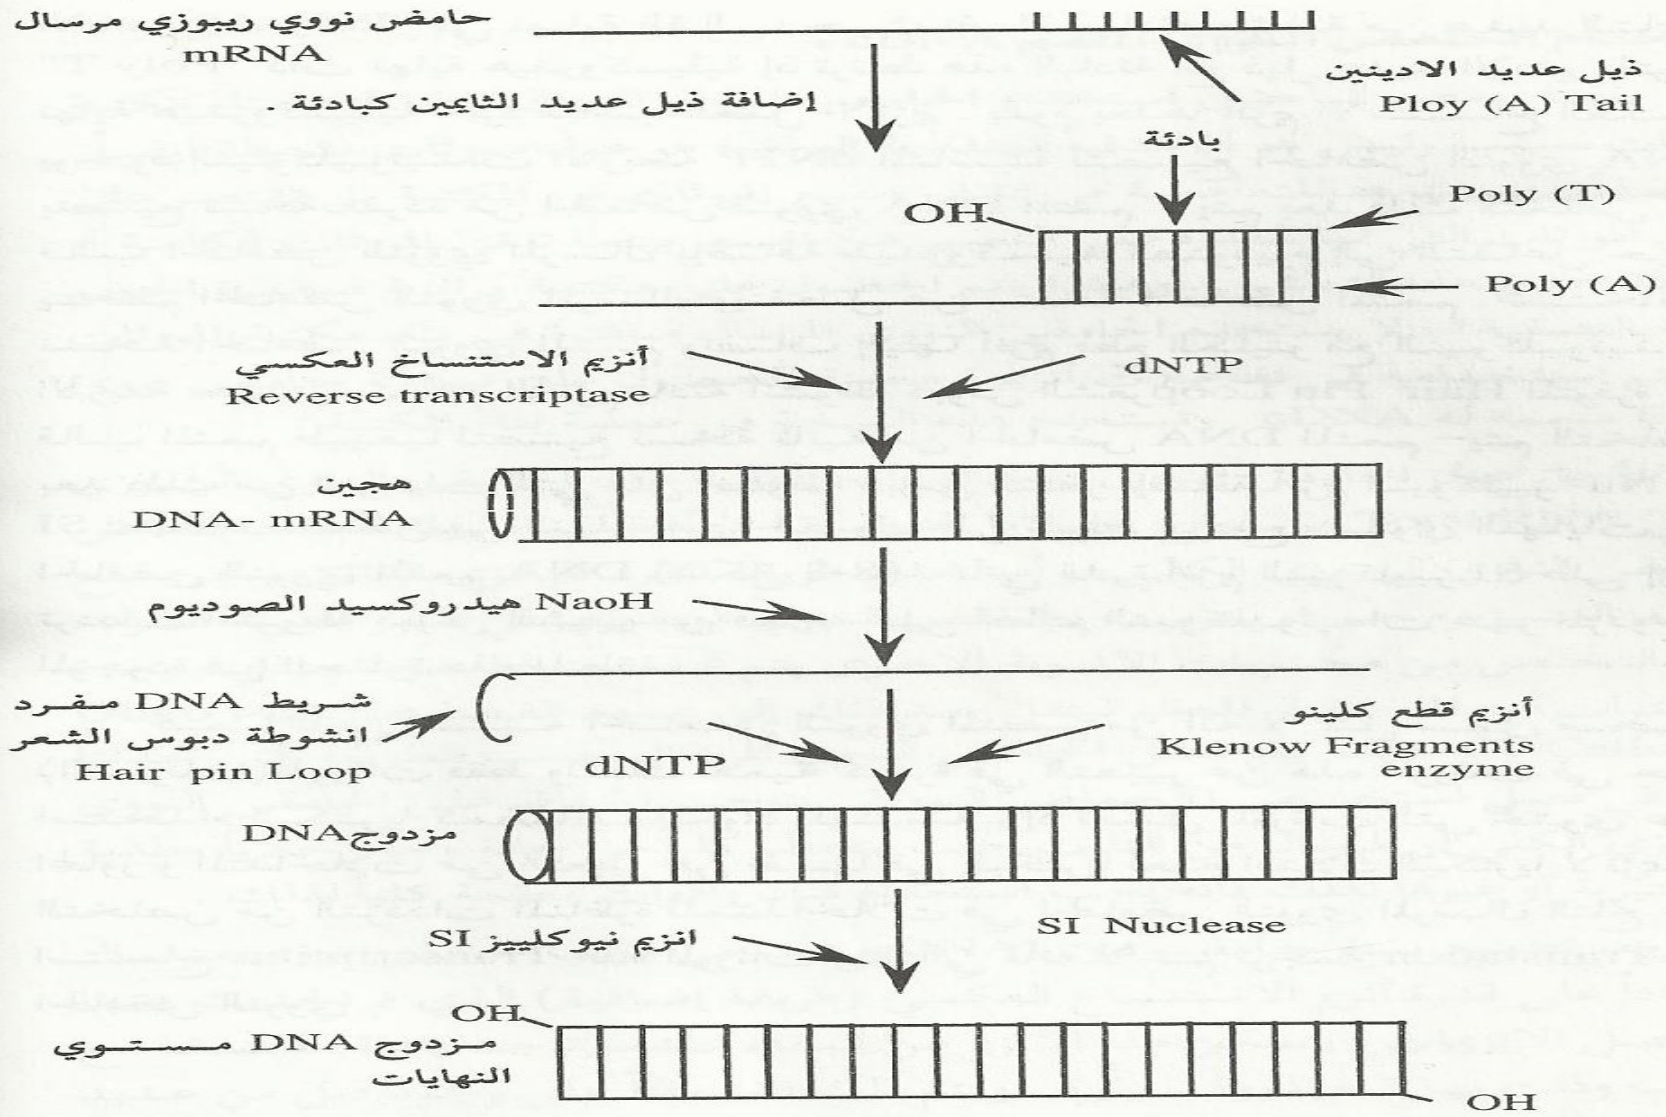 حامض نووي ريبوزي مرسال
mRNA
ذيل عديد الادينين
Ploy (A) Tail
إضافة ذيل عديد الثايمين كبادئة .
بادئة
OH
Poly (T)
Poly (A)
أنزيم الاستنساخ العكسي
Reverse transcriptase
dNTP
هجين
DNA- mRNA
هيدروكسيد الصوديوم NaoH
شريط DNA مفرد
انشوطة دبوس الشعر
Hair pin Loop
dNTP
أنزيم قطع كلينو
Klenow Fragments
enzyme
مزدوج DNA
SI Nuclease
انزيم نيوكلييز SI
OH
مزدوج DNA مستوي
النهايات
OH